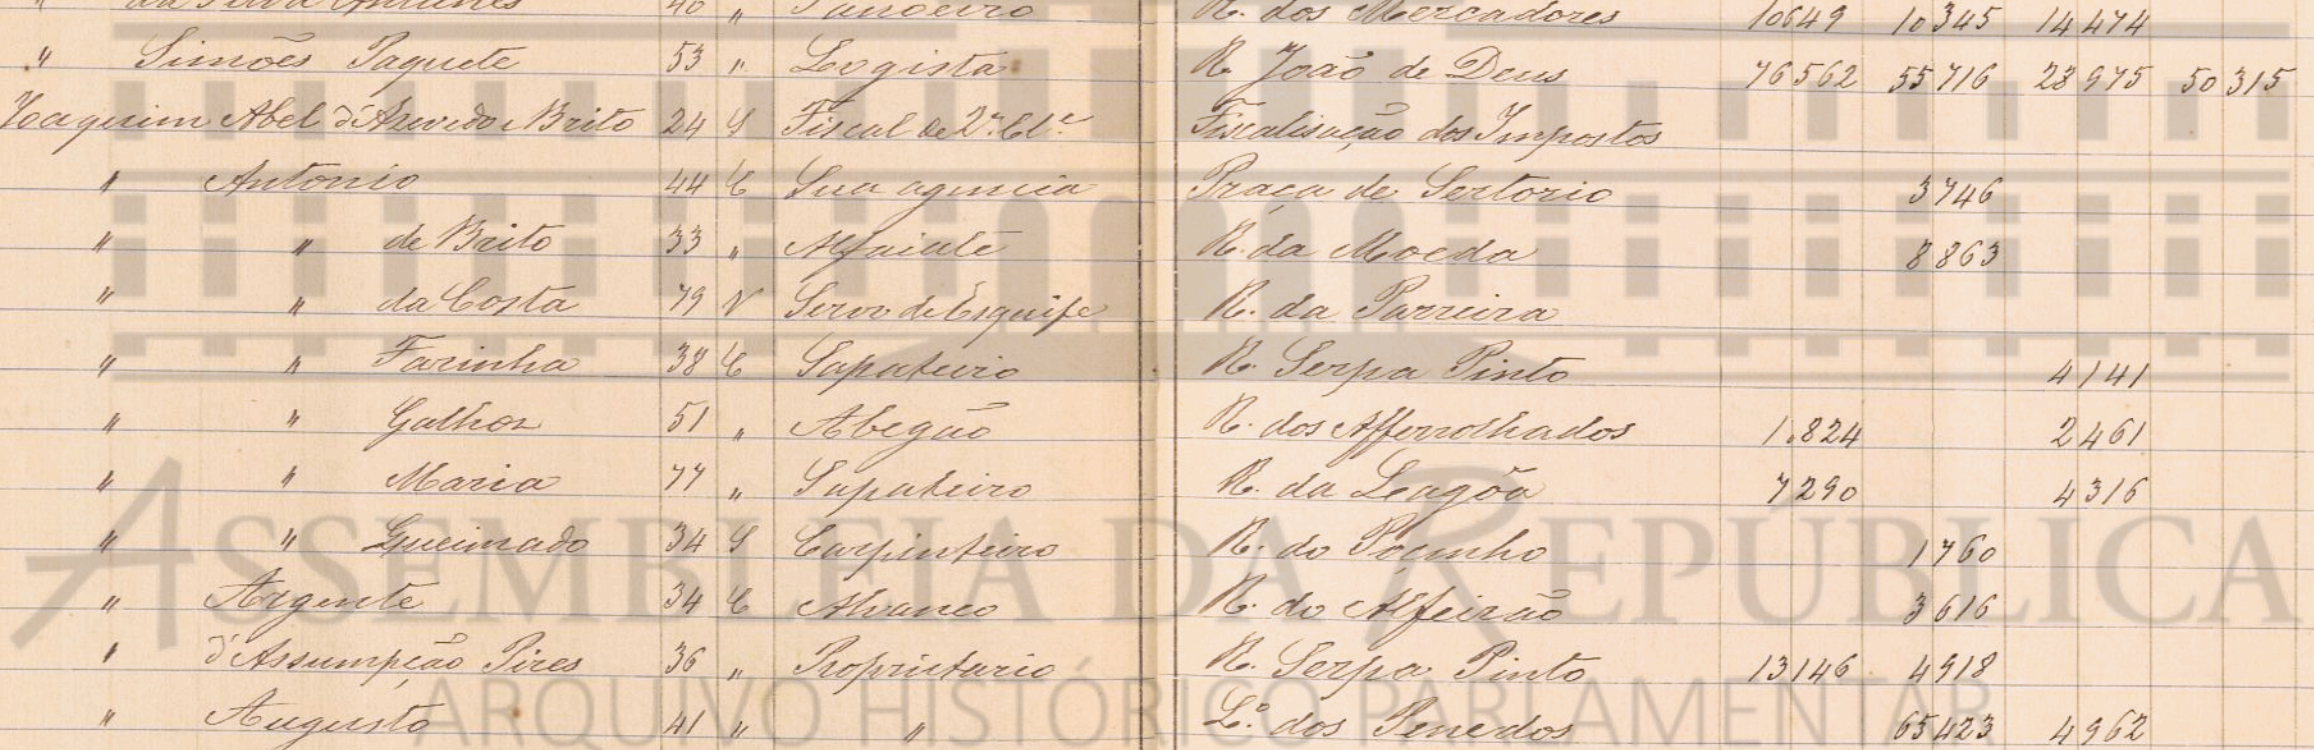 " da Silva Antunes 40 " Tanoeiro R. dos Mercadores 10649 10345 14474
" Simões Paquete 53 " Logista R. João de Deus 76562 55716 28975 50315
Joaquim Abel d'Azevedo Brito 24 S Fiscal de 2ª Clᵉ Fiscalisação dos Impostos
" Antonio 44 C Sua agencia Praça de Sertorio 3746
" " de Brito 33 " Alfaiate R. da Moeda 8863
" " da Costa 79 V Servo de Esquife R. da Parreira
" " Farinha 38 C Sapateiro R. Serpa Pinto 4141
" " Galhoz 51 " Abegão R. dos Afferrolhados 1.824 2461
" " Maria 77 " Sapateiro R. da Lagôa 7290 4316
" " Queimado 34 S Carpinteiro R. do Pocinho 1760
" Argente 34 C Alvaneo R. do Alfeirão 3616
" d'Assumpção Pires 36 " Proprietario R. Serpa Pinto 13146 4918
" Augusto 41 " " L.º dos Penedos 65423 4962
ASSEMBLEIA DA REPÚBLICA
ARQUIVO HISTÓRICO PARLAMENTAR